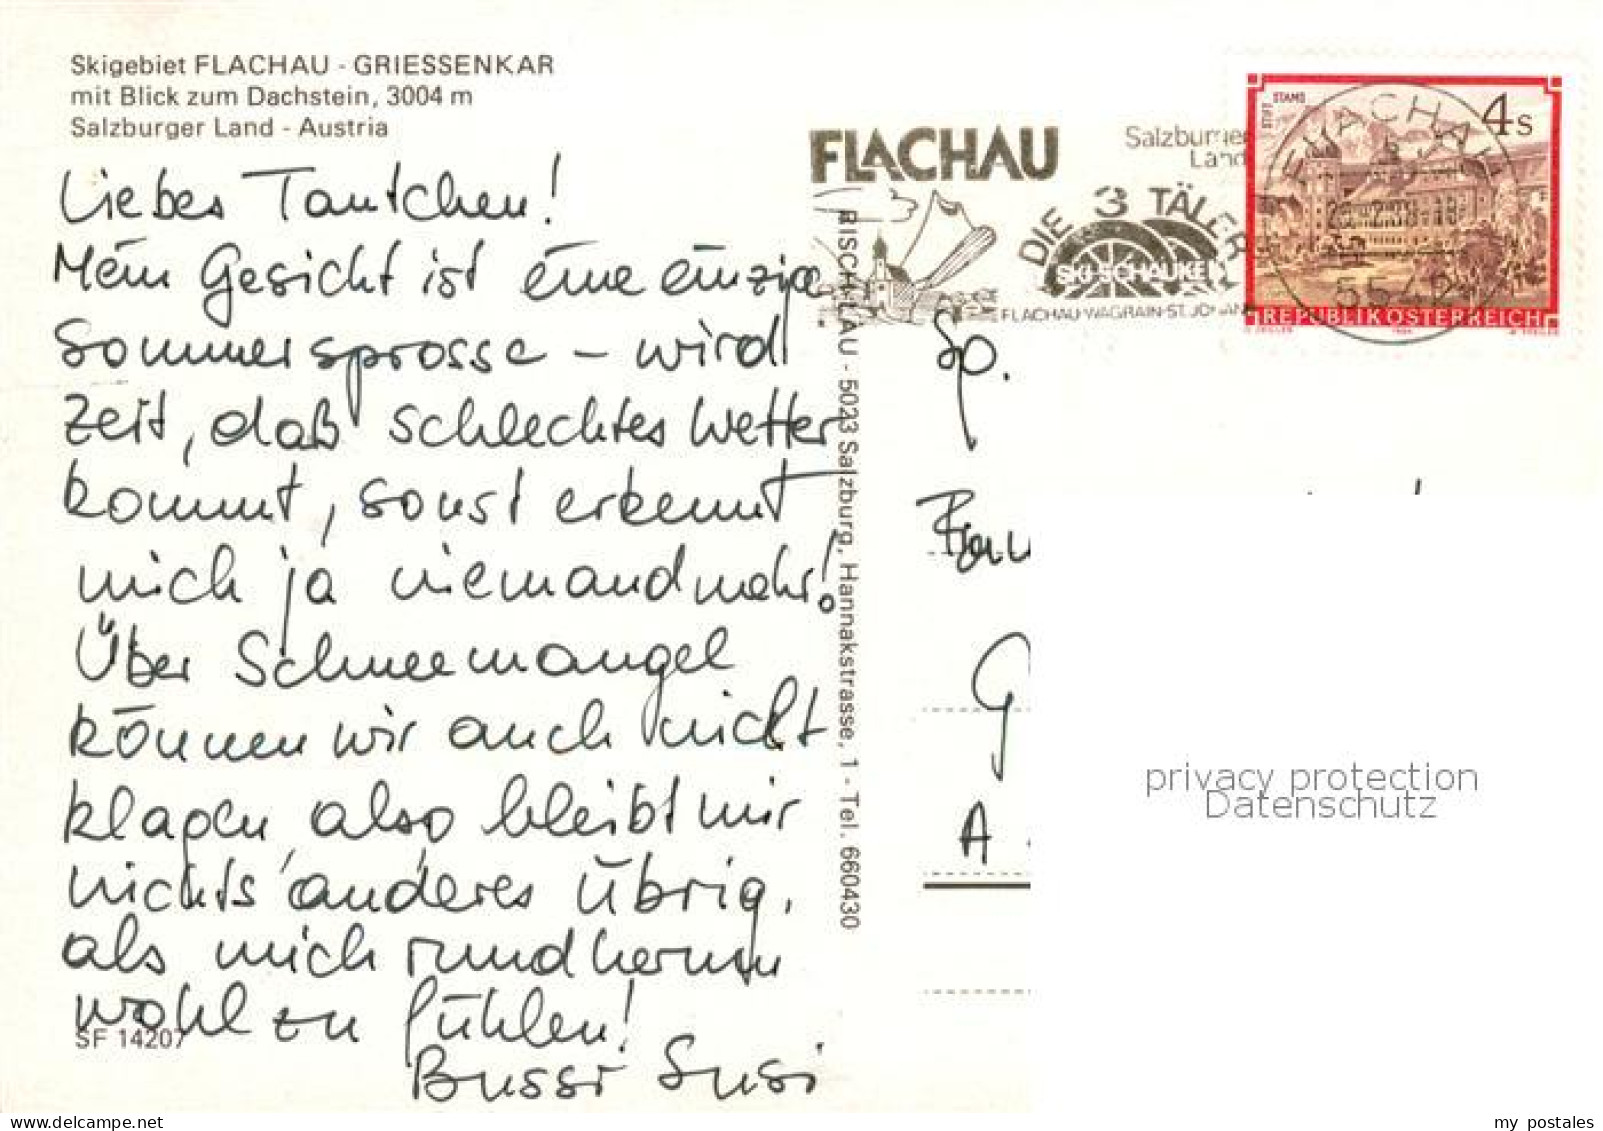 Skigebiet FLACHAU - GRIESSENKAR
mit Blick zum Dachstein, 3004 m
Salzburger Land - Austria
Liebes Tantchen!
Mein Gesicht ist eine einzige
Sommersprosse – wird
Zeit, daß schlechtes Wetter
kommt, sonst erkennt
mich ja niemand mehr!
Über Schneemangel
können wir auch nicht
klagen, also bleibt mir
nichts anderes übrig,
als mich rundherum
wohl zu fühlen!
Bussi Susi
SF 14207
RISCH-LAU - 5023 Salzburg, Hannakstrasse, 1 - Tel. 660430
FLACHAU
Salzburger
Land
DIE 3 TÄLER
SKI-SCHAUKEL
FLACHAU-WAGRAIN-ST. JOHANN
STIFT STAMS
4 S
REPUBLIK ÖSTERREICH
FLACHAU
5542
Sp.
G
A
privacy protection
Datenschutz
my postales